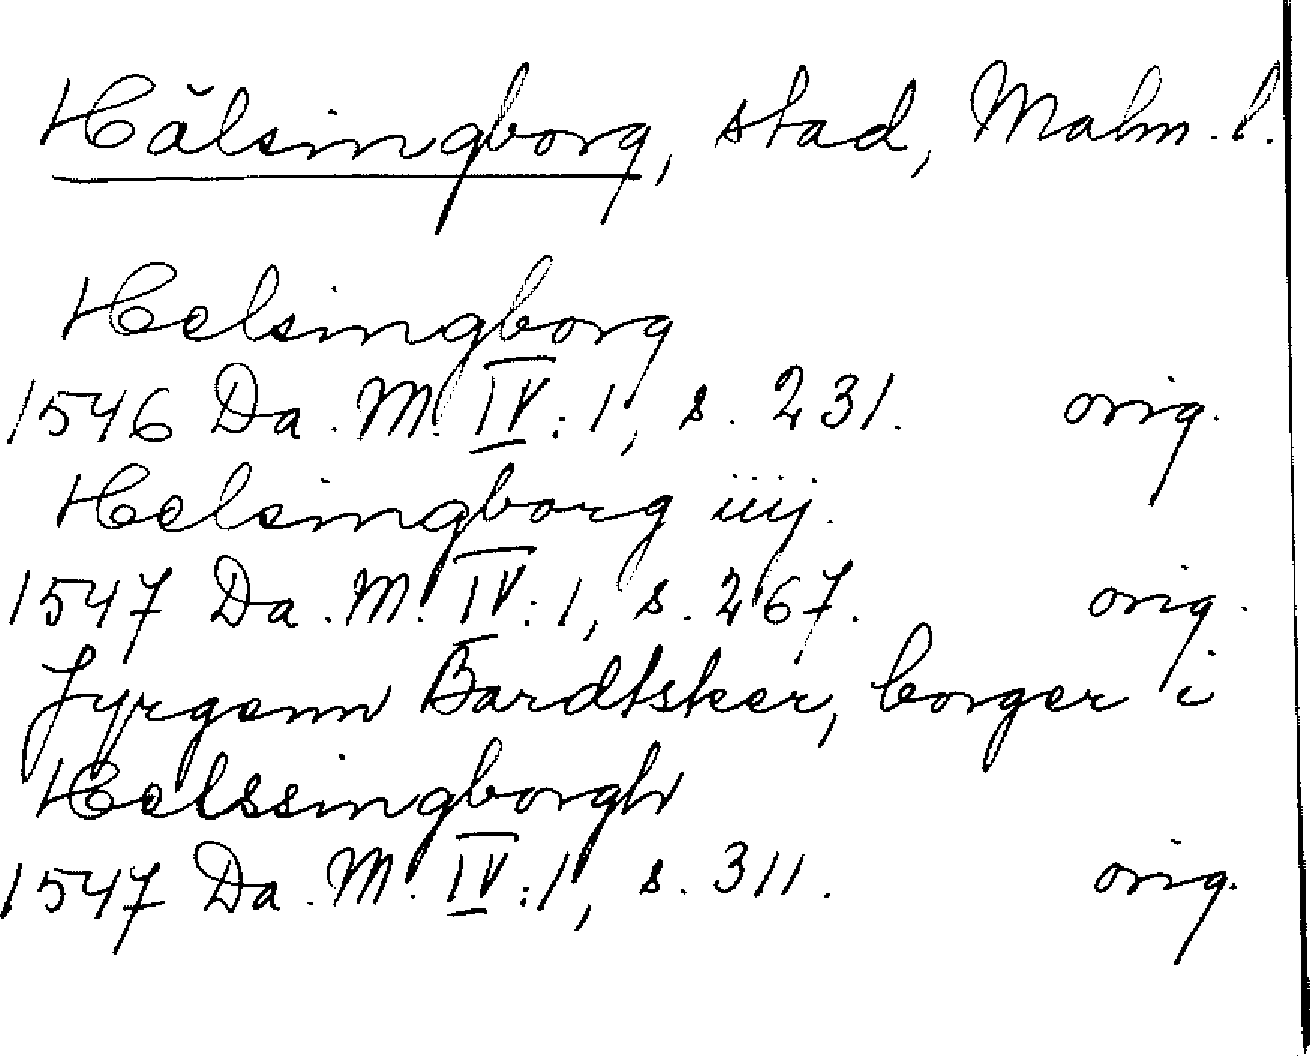 Hälsingborg, stad, Malm. l.
Helsingborg
1546 Da. M. IV: 1, s. 231. orig.
Helsingborg iiij.
1547 Da. M. IV: 1, s. 267. orig.
Jyrgenn Bardtsker, borger i
Helssingborgh
1547 Da. M. IV: 1, s. 311. orig.